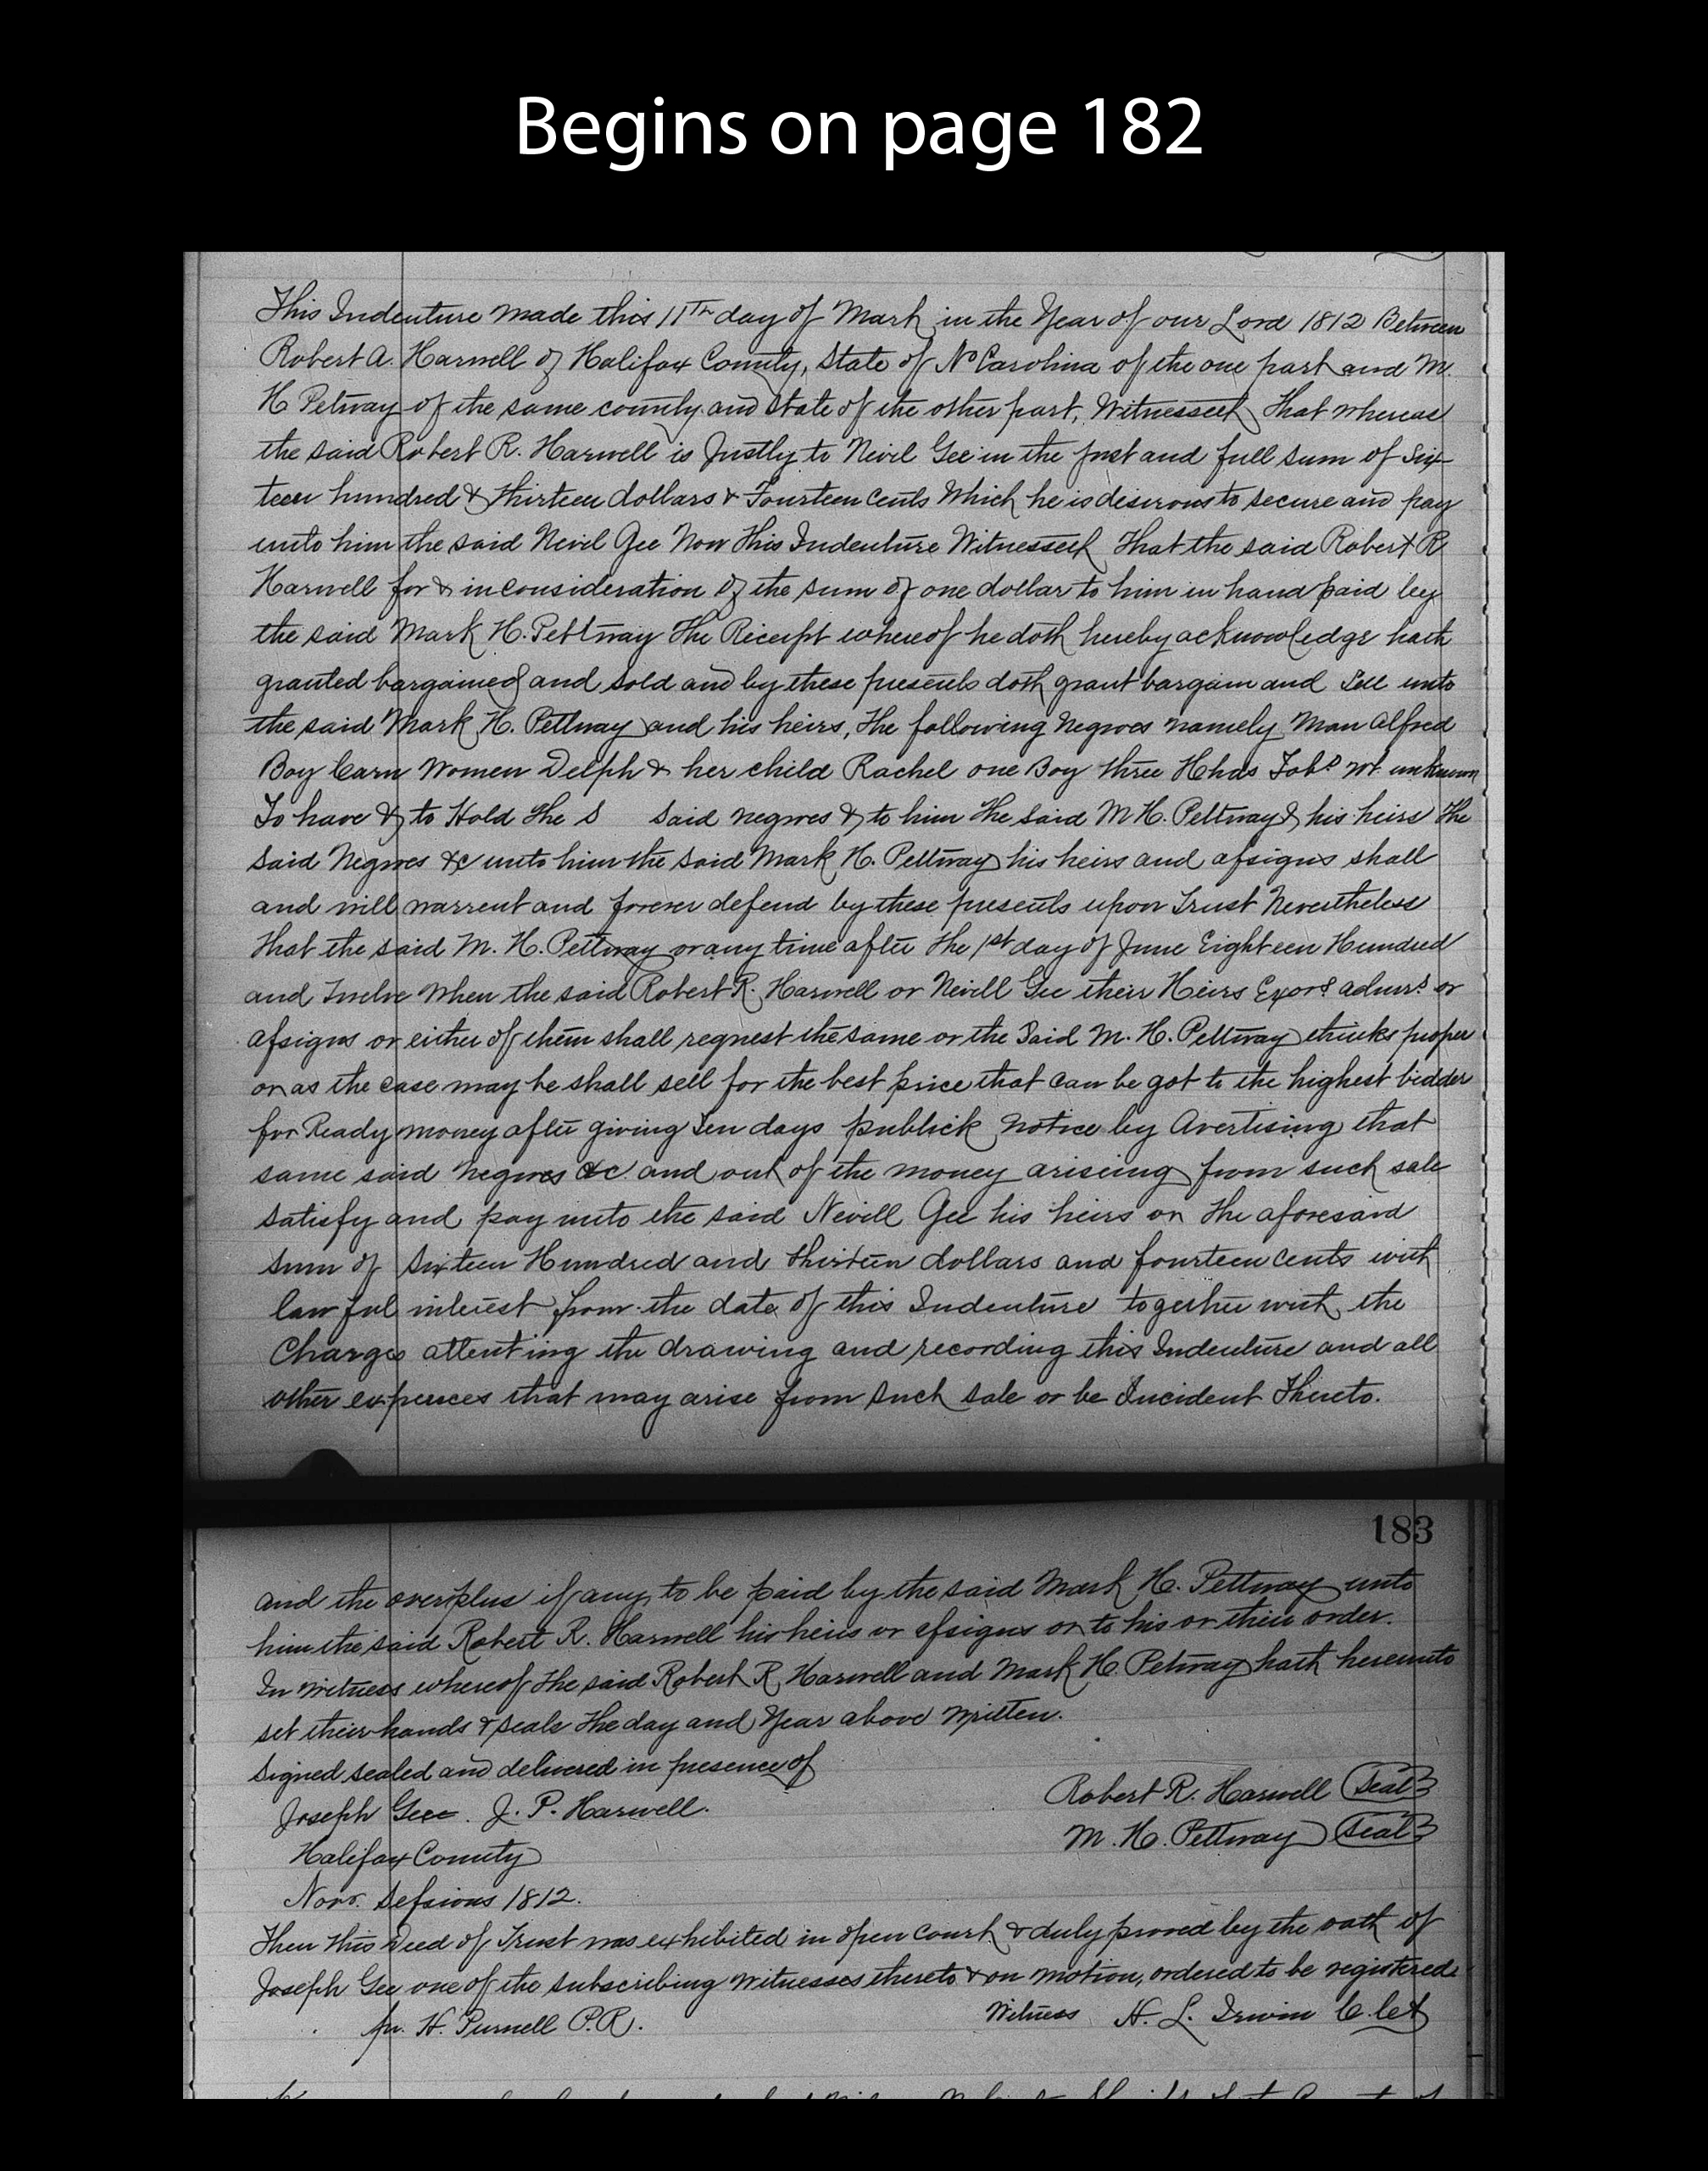 Begins on page 182
This Indenture made this 11th day of Mark in the Year of our Lord 1812 Between
Robert A. Harwell of Halifax County, State of No Carolina of the one part and M.
H Petway of the same county and State of the other part, Witnesseth That whereas
the said Robert R. Harwell is Justly to Nevil Gee in the just and full sum of Six-
teen hundred & thirteen dollars & Fourteen Cents Which he is desirous to secure and pay
unto him the said Nevil Gee Now This Indenture Witnesseth That the said Robert R
Harwell for & in consideration of the sum of one dollar to him in hand paid by
the said Mark H. Pettway the Receipt whereof he doth hereby acknowledge hath
granted bargained and sold and by these presents doth grant bargain and Sell unto
the said Mark H. Pettway and his heirs, the following Negroes namely Man Alfred
Boy Carn Women Delph & her child Rachel one Boy three Hhds Tobo wt unknown
To have & to Hold the S said negroes & to him the said M H. Pettway & his heirs The
said Negroes &c unto him the said Mark H. Pettway his heirs and assigns shall
and will warrent and forever defend by these presents upon Trust Nevertheless
That the said M. H. Pettway or any time after the 1st day of June Eighteen Hundred
and Twelve when the said Robert R. Harwell or Nevill Gee their Heirs Exors admrs or
assigns or either of them shall request the same or the Said M. H. Pettway thinks proper
or as the case may be shall sell for the best price that can be got to the highest bidder
for Ready money after giving Ten days publick notice by Avertising that
same said negroes &c. and out of the money ariseing from such sale
satisfy and pay unto the said Nevill Gee his heirs or the aforesaid
sum of Sixteen Hundred and thirteen dollars and fourteen cents with
lawful interest from the date of this Indenture together with the
Charges attenting the drawing and recording this Indenture and all
other expences that may arise from such sale or be Incident Thereto.
183
and the overplus if any to be paid by the said Mark H. Pettway unto
him the said Robert R. Harwell his heirs or assigns or to his or their order.
In witness whereof the said Robert R. Harwell and Mark H. Petway hath hereunto
set their hands & seals the day and Year above written.
Signed sealed and delivered in presence of
Joseph Gee. J. P. Harwell.
Robert R. Harwell (Seal)
M. H. Pettway (Seal)
Halifax County
Novr. Sessions 1812.
Then this Deed of Trust was exhibited in open Court & duly proved by the oath of
Joseph Gee one of the subscribing witnesses thereto & on motion, ordered to be registered.
H. Purnell P.R. Witness H. L. Irwin C. Ct